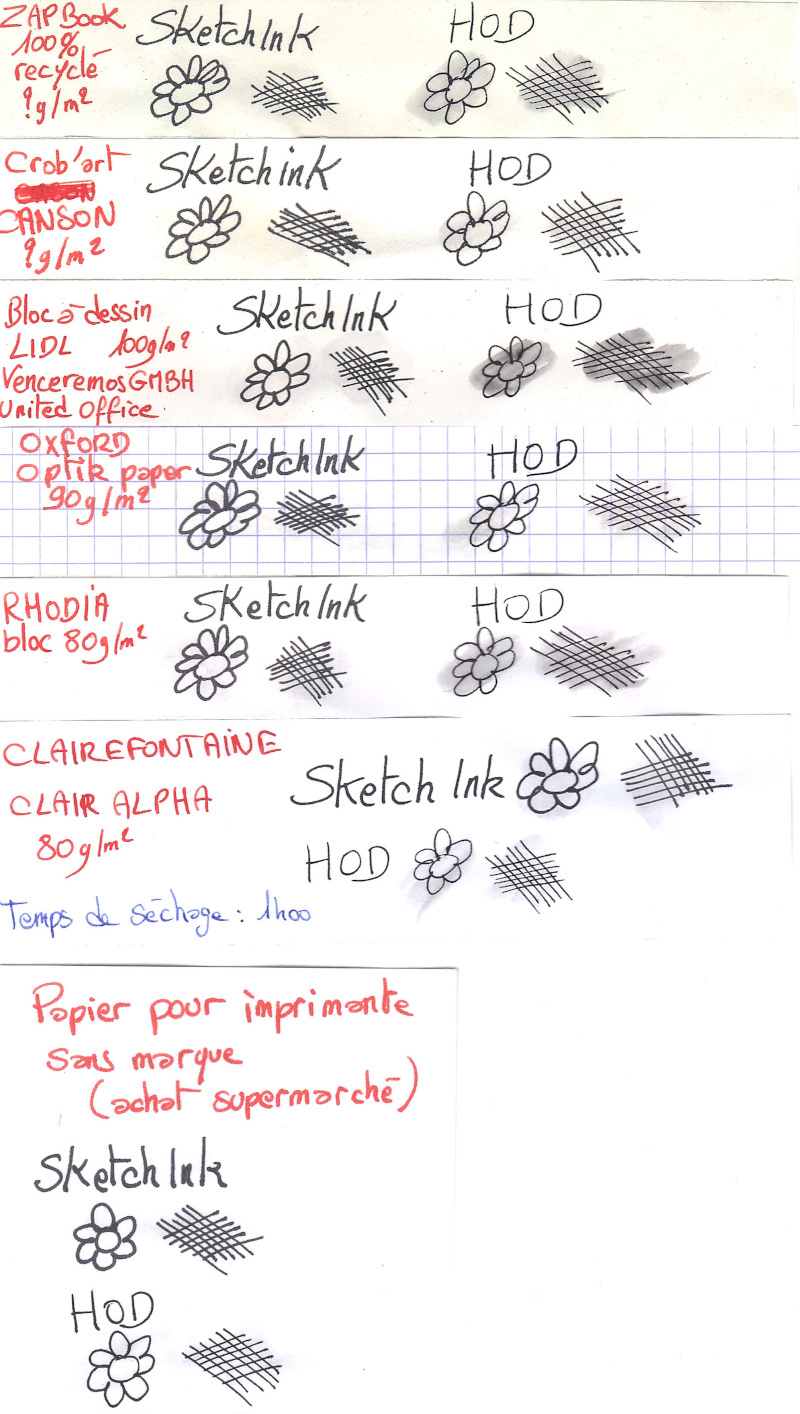 ZAPBook
100%
recyclé
?g/m²
SketchInk
HOD
Crob'art
CANSON
?g/m²
Sketch ink
HOD
Bloc à dessin
LIDL 100g/m²
Venceremos GMBH
United Office
SketchInk
HOD
OXFORD
Optik paper
90g/m²
SketchInk
HOD
RHODIA
bloc 80g/m²
SketchInk
HOD
CLAIREFONTAINE
CLAIR ALPHA
80g/m²
Sketch Ink
HOD
Temps de séchage : 1h00
Papier pour imprimante
sans marque
(achat supermarché)
Sketch Ink
HOD